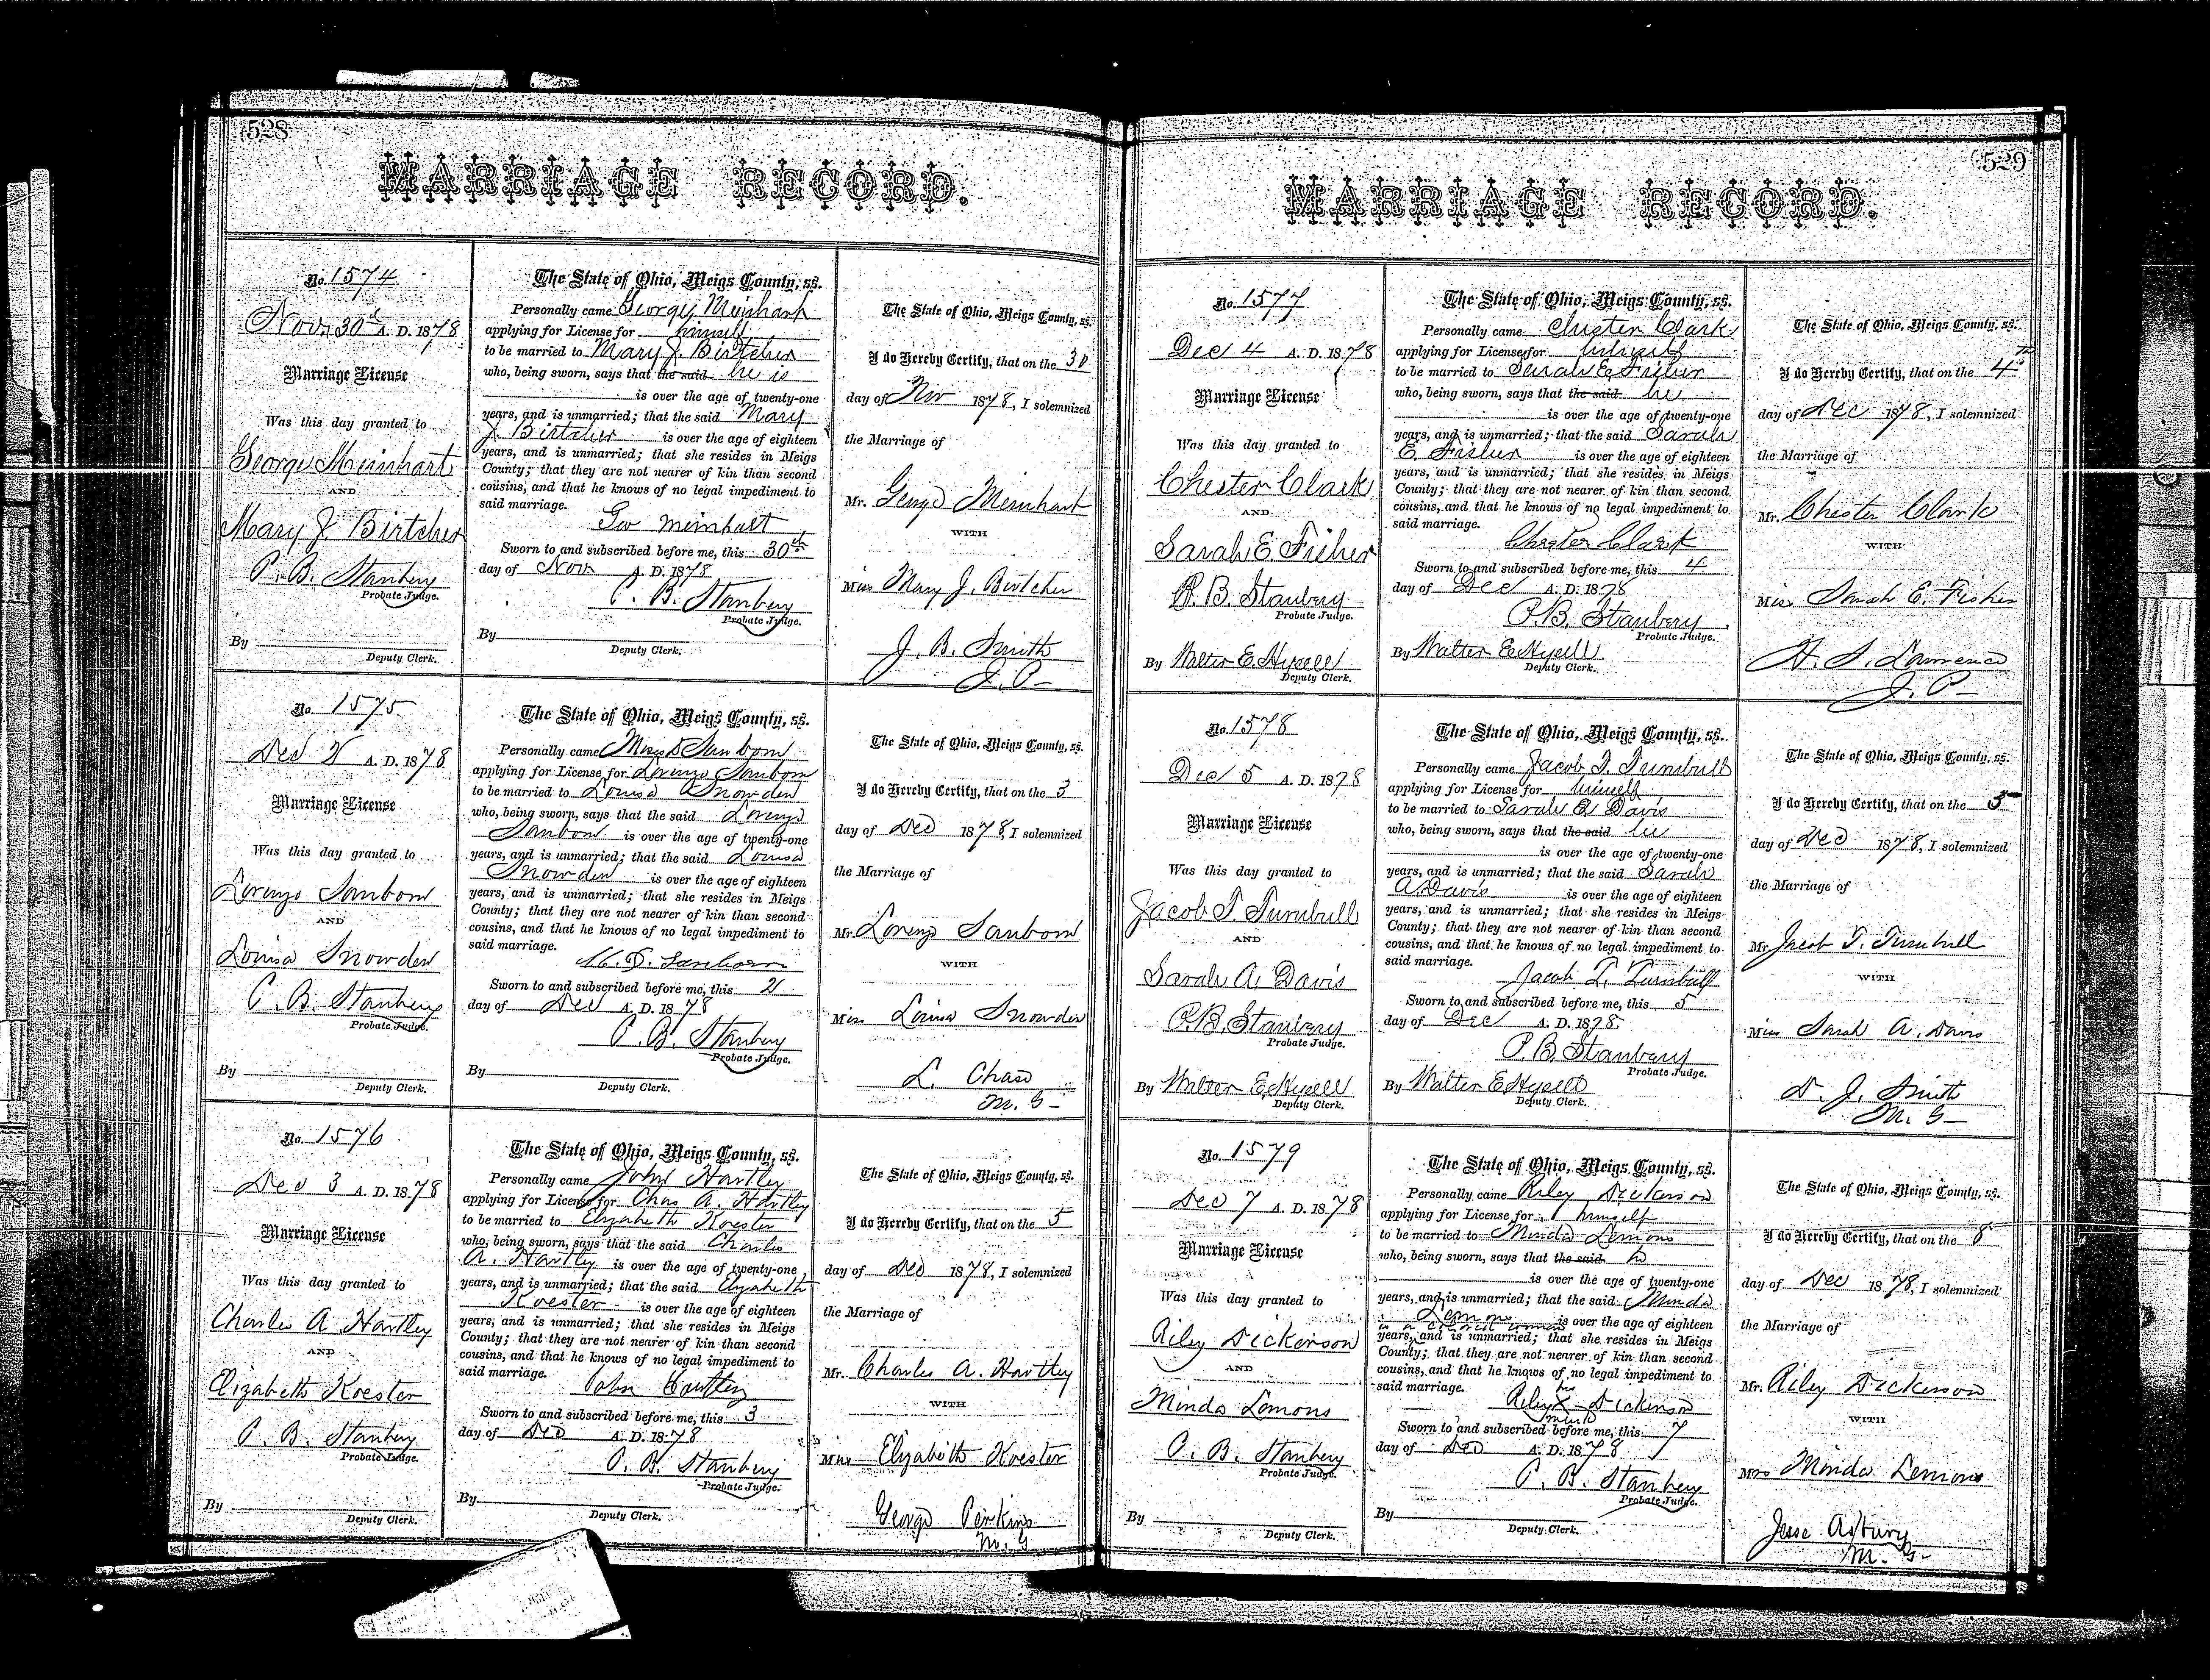 528
MARRIAGE RECORD.
No. 1574
Nov. 30th A. D. 1878
Marriage License
Was this day granted to
George Meinhart
AND
Mary J. Birtcher
P. B. Stanbery
Probate Judge.
By
Deputy Clerk.
The State of Ohio, Meigs County, ss.
Personally came George Meinhart
applying for License for himself
to be married to Mary J. Birtcher
who, being sworn, says that the said he is
is over the age of twenty-one
years, and is unmarried; that the said Mary
J. Birtcher is over the age of eighteen
years, and is unmarried; that she resides in Meigs
County; that they are not nearer of kin than second
cousins, and that he knows of no legal impediment to
said marriage.
Geo Meinhart
Sworn to and subscribed before me, this 30th
day of Nov. A. D. 1878
P. B. Stanbery
Probate Judge.
By
Deputy Clerk.
The State of Ohio, Meigs County, ss.
I do Hereby Certify, that on the 30
day of Nov 1878, I solemnized
the Marriage of
Mr. George Meinhart
WITH
Miss Mary J. Birtcher
J. B. Smith
J. P.
No. 1575
Dec 2 A. D. 1878
Marriage License
Was this day granted to
Lorenzo Sanborn
AND
Louisa Snowden
P. B. Stanbery
Probate Judge.
By
Deputy Clerk.
The State of Ohio, Meigs County, ss.
Personally came Sanborn
applying for License for Lorenzo Sanborn
to be married to Louisa Snowden
who, being sworn, says that the said Lorenzo
Sanborn is over the age of twenty-one
years, and is unmarried; that the said Louisa
Snowden is over the age of eighteen
years, and is unmarried; that she resides in Meigs
County; that they are not nearer of kin than second
cousins, and that he knows of no legal impediment to
said marriage.
M. D. Sanborn
Sworn to and subscribed before me, this 2
day of Dec A. D. 1878
P. B. Stanbery
Probate Judge.
By
Deputy Clerk.
The State of Ohio, Meigs County, ss.
I do Hereby Certify, that on the 3
day of Dec 1878, I solemnized
the Marriage of
Mr. Lorenzo Sanborn
WITH
Miss Louisa Snowden
L. Chase
M. G.
No. 1576
Dec 3 A. D. 1878
Marriage License
Was this day granted to
Charles A Hartley
AND
Elizabeth Koester
P. B. Stanbery
Probate Judge.
By
Deputy Clerk.
The State of Ohio, Meigs County, ss.
Personally came John Hartley
applying for License for Chas A. Hartley
to be married to Elizabeth Koester
who, being sworn, says that the said Charles
A. Hartley is over the age of twenty-one
years, and is unmarried; that the said Elizabeth
Koester is over the age of eighteen
years, and is unmarried; that she resides in Meigs
County; that they are not nearer of kin than second
cousins, and that he knows of no legal impediment to
said marriage.
John Hartley
Sworn to and subscribed before me, this 3
day of Dec A. D. 1878
P. B. Stanbery
Probate Judge.
By
Deputy Clerk.
The State of Ohio, Meigs County, ss.
I do Hereby Certify, that on the 5
day of Dec 1878, I solemnized
the Marriage of
Mr. Charles A. Hartley
WITH
Miss Elizabeth Koester
George Perkins
M. G
529
MARRIAGE RECORD.
No. 1577
Dec 4 A. D. 1878
Marriage License
Was this day granted to
Chester Clark
AND
Sarah E. Fisher
P. B. Stanbery
Probate Judge.
By Walter E. Hysell
Deputy Clerk.
The State of Ohio, Meigs County, ss.
Personally came Chester Clark
applying for License for himself
to be married to Sarah E. Fisher
who, being sworn, says that the said he
is over the age of twenty-one
years, and is unmarried; that the said Sarah
E. Fisher is over the age of eighteen
years, and is unmarried; that she resides in Meigs
County; that they are not nearer of kin than second
cousins, and that he knows of no legal impediment to
said marriage.
Chester Clark
Sworn to and subscribed before me, this 4
day of Dec A. D. 1878
P. B. Stanbery
Probate Judge.
By Walter E Hysell
Deputy Clerk.
The State of Ohio, Meigs County, ss.
I do Hereby Certify, that on the 4th
day of Dec 1878, I solemnized
the Marriage of
Mr. Chester Clark
WITH
Miss Sarah E. Fisher
H. S. Lawrence
J. P.
No. 1578
Dec 5 A. D. 1878
Marriage License
Was this day granted to
Jacob T. Turnbull
AND
Sarah A. Davis
P. B. Stanbery
Probate Judge.
By Walter E. Hysell
Deputy Clerk.
The State of Ohio, Meigs County, ss.
Personally came Jacob T. Turnbull
applying for License for himself
to be married to Sarah A Davis
who, being sworn, says that the said he
is over the age of twenty-one
years, and is unmarried; that the said Sarah
A. Davis is over the age of eighteen
years, and is unmarried; that she resides in Meigs
County; that they are not nearer of kin than second
cousins, and that he knows of no legal impediment to
said marriage.
Jacob T. Turnbull
Sworn to and subscribed before me, this 5
day of Dec A. D. 1878
P. B. Stanbery
Probate Judge.
By Walter E Hysell
Deputy Clerk.
The State of Ohio, Meigs County, ss.
I do Hereby Certify, that on the 5
day of Dec 1878, I solemnized
the Marriage of
Mr. Jacob T. Turnbull
WITH
Miss Sarah A. Davis
D. J. Smith
M. G
No. 1579
Dec 7 A. D. 1878
Marriage License
Was this day granted to
Riley Dickerson
AND
Minda Lemons
P. B. Stanbery
Probate Judge.
By
Deputy Clerk.
The State of Ohio, Meigs County, ss.
Personally came Riley Dickerson
applying for License for himself
to be married to Minda Lemons
who, being sworn, says that the said he
is over the age of twenty-one
years, and is unmarried; that the said Minda
Lemons is over the age of eighteen
is a colored woman
years, and is unmarried; that she resides in Meigs
County; that they are not nearer of kin than second
cousins, and that he knows of no legal impediment to
said marriage.
his
Riley X Dickerson
mark
Sworn to and subscribed before me, this 7
day of Dec A. D. 1878
P. B. Stanbery
Probate Judge.
By
Deputy Clerk.
The State of Ohio, Meigs County, ss.
I do Hereby Certify, that on the 8
day of Dec 1878, I solemnized
the Marriage of
Mr. Riley Dickerson
WITH
Mrs Minda Lemons
Jesse Asbury
M. G.